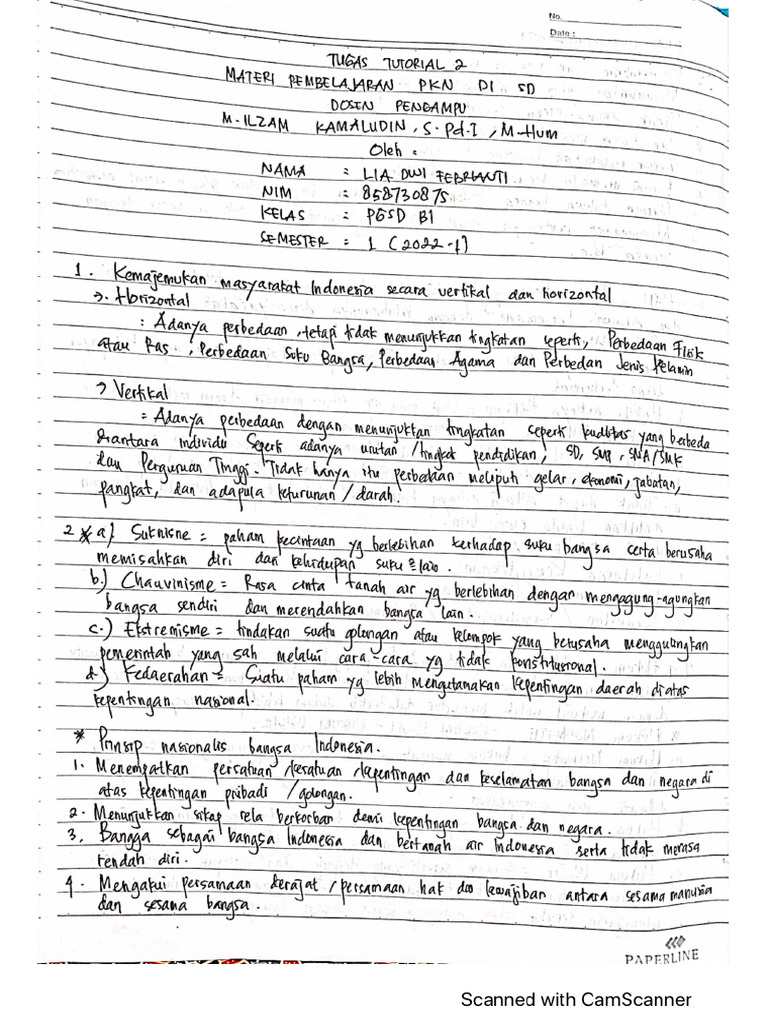 No.
Date :
TUGAS TUTORIAL 2
MATERI PEMBELAJARAN PKN DI SD
DOSEN PENGAMPU
M. ILZAM KAMALUDIN, S.Pd.I, M.Hum
Oleh :
NAMA : LIA DWI FEBRIANTI
NIM : 858730875
KELAS : PGSD B1
SEMESTER : 1 (2022-1)
1. Kemajemukan masyarakat Indonesia secara vertikal dan horizontal
>. Horizontal
: Adanya perbedaan, tetapi tidak menunjukkan tingkatan seperti, Perbedaan Fisik
atau Ras, Perbedaan Suku Bangsa, Perbedaan Agama dan Perbedan Jenis Kelamin
> Vertikal
= Adanya perbedaan dengan menunjuktan tingkatan seperti kualitas yang berbeda
diantara individu Seperti adanya urutan /tingkat pendidikan, SD, SMP, SMA/SMK
dan Perguruan Tinggi. Tidak hanya itu perbedaan meliputi gelar, ekonomi, jabatan,
pangkat, dan adapula keturunan / darah.
2 * a) Sukuisme = paham kecintaan yg berlebihan terhadap suku bangsa serta berusaha
memisahkan diri dari kehidupan suku lain.
b.) Chauvinisme = Rasa cinta tanah air yg berlebihan dengan mengagung-agungkan
bangsa sendiri dan merendahkan bangsa lain.
c.) Ekstremisme = tindakan suatu golongan atau kelompok yang berusaha menggulingkan
pemerintah yang sah melalui cara-cara yg tidak konstitusional.
d.) Kedaerahan = Suatu paham yg lebih mengutamakan kepentingan daerah diatas
kepentingan nasional.
* Prinsip nasionalis bangsa Indonesia.
1. Menempatkan persatuan /kesatuan /kepentingan dan keselamatan bangsa dan negara di
atas kepentingan pribadi /golongan.
2. Menunjukkan sikap rela berkorban demi kepentingan bangsa dan negara.
3. Bangga sebagai bangsa Indonesia dan bertanah air Indonesia serta tidak merasa
rendah diri.
4. Mengakui persamaan derajat /persamaan hak dan kewajiban antara sesama manusia
dan sesama bangsa.
PAPERLINE
Scanned with CamScanner